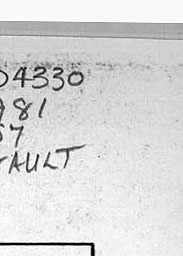 04330
981
57
AULT